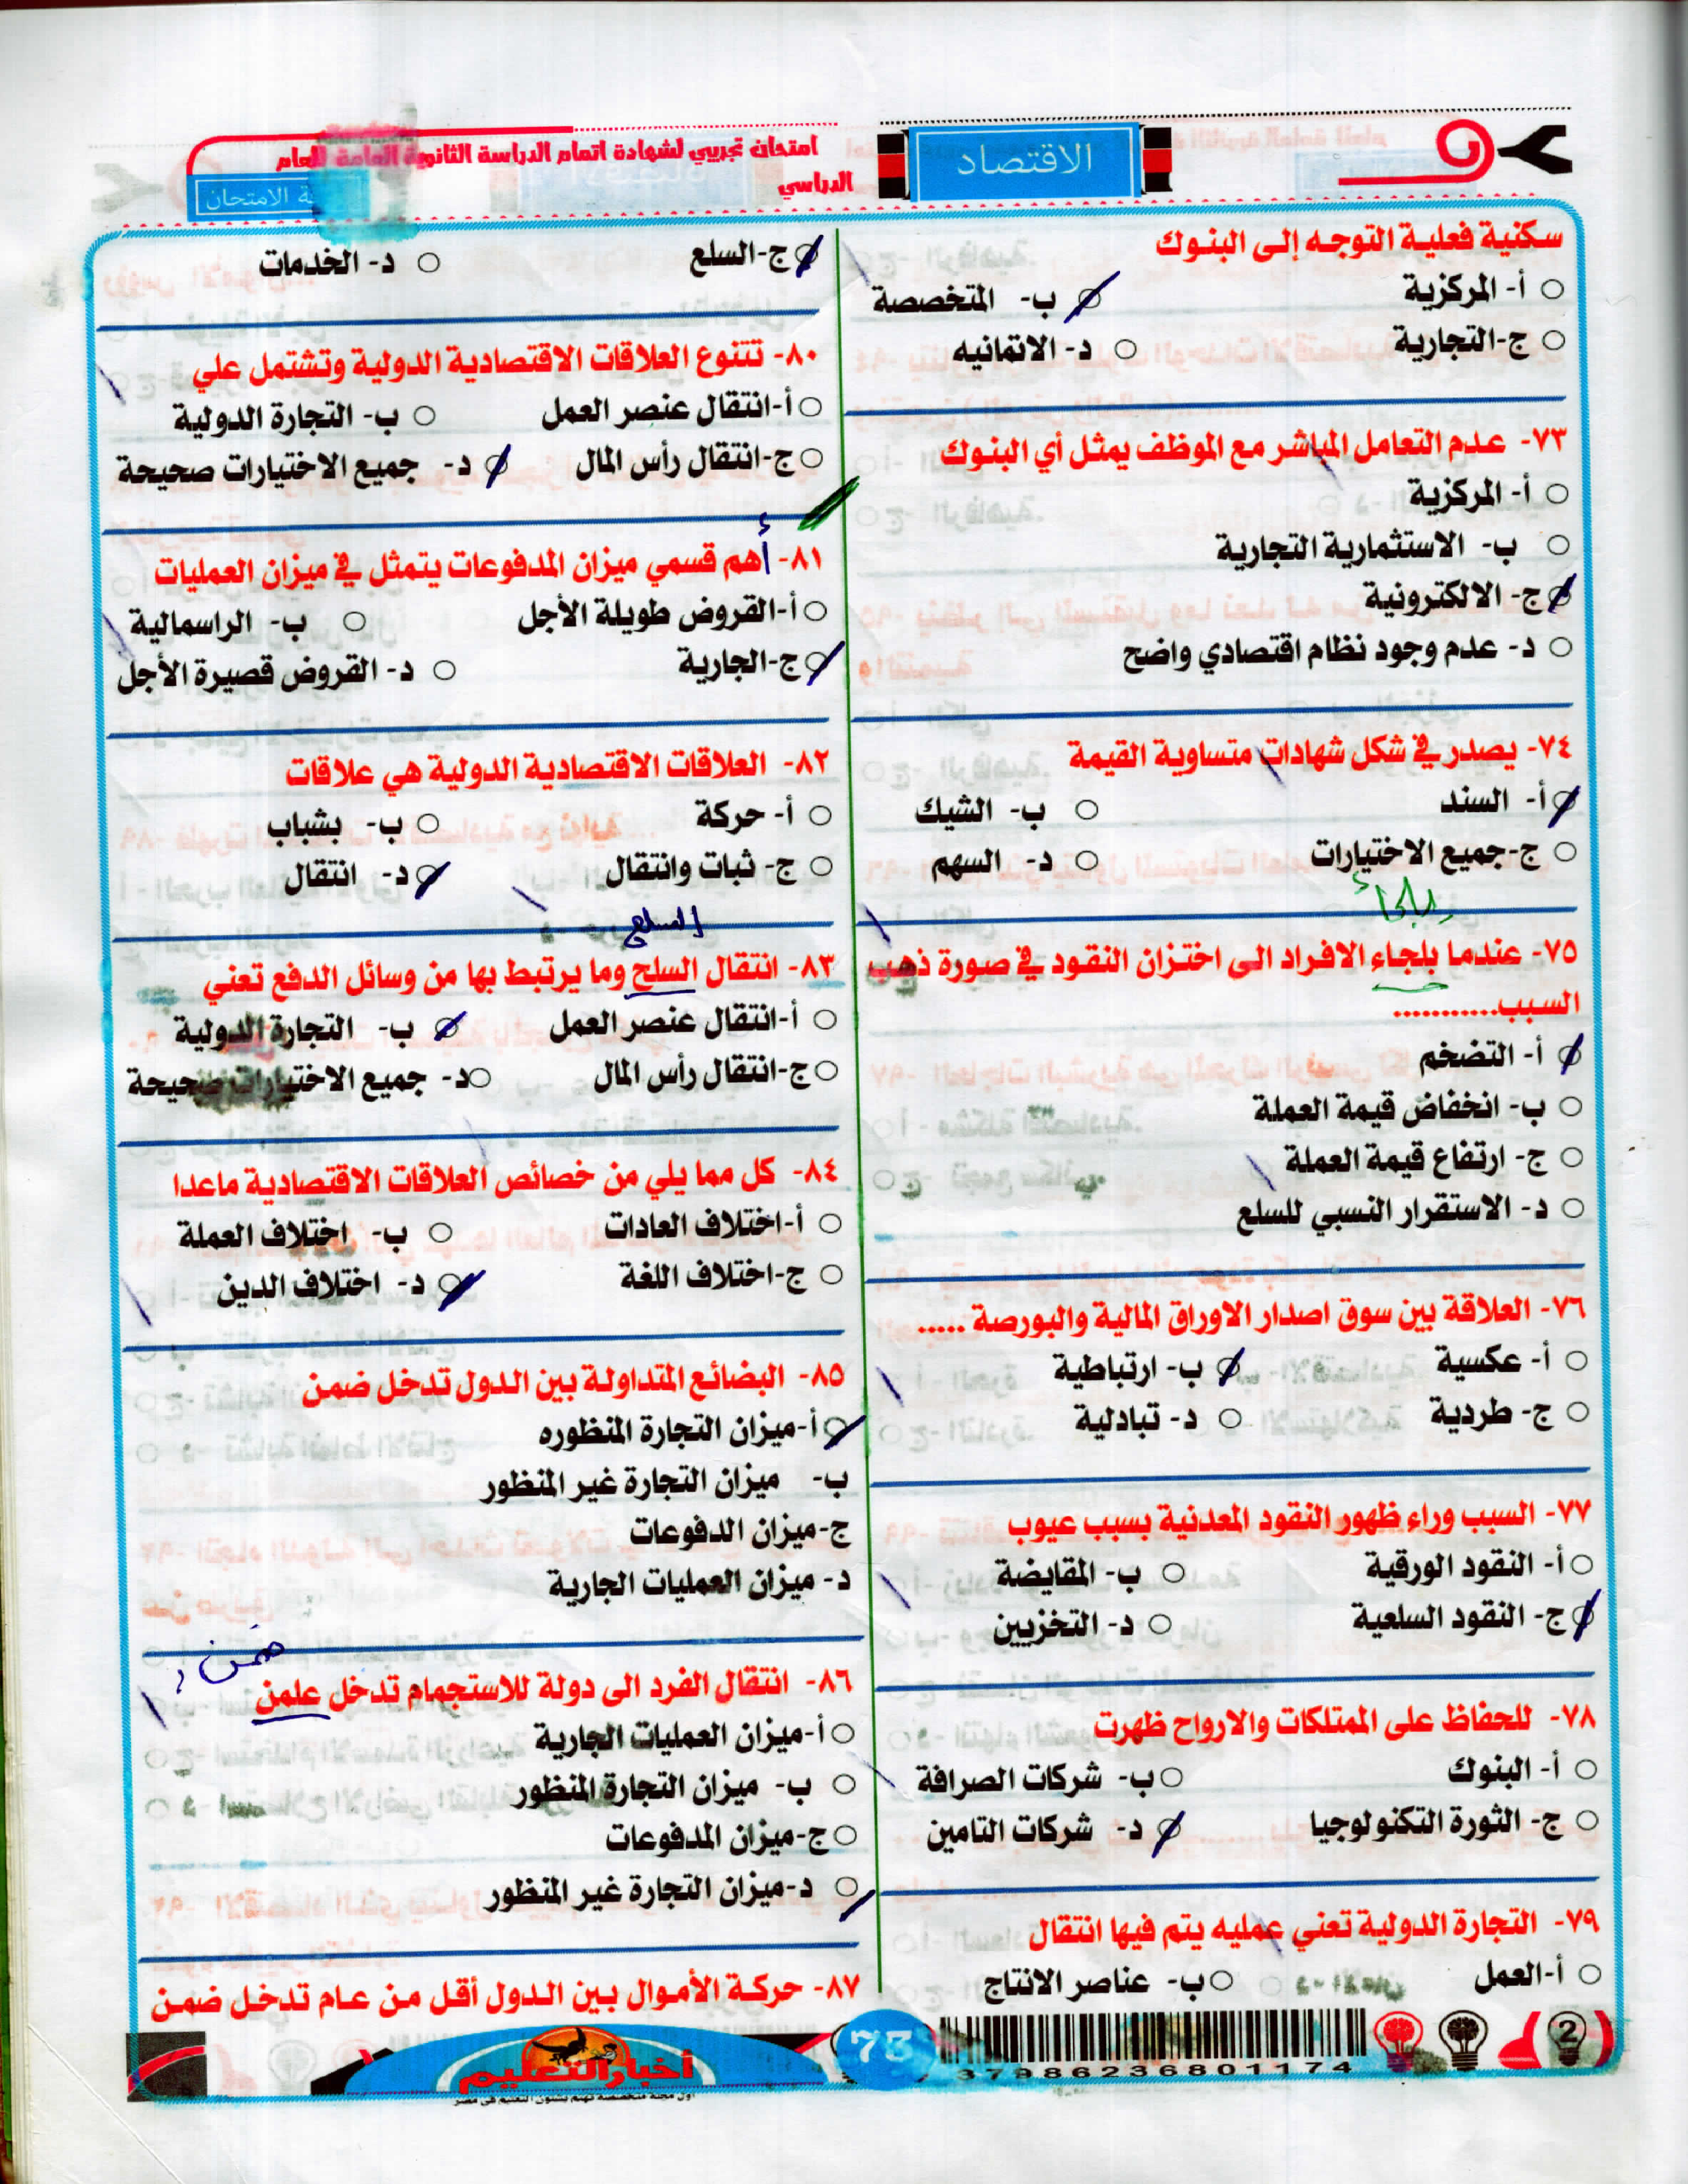 الاقتصاد
امتحان تجريبي لشهادة اتمام الدراسة الثانوية العامة للعام
الدراسي
ة الامتحان
سكنية فعلية التوجه إلى البنوك
أ- المركزية
ب- المتخصصة
ج-التجارية
د- الائتمانيه
٧٣- عدم التعامل المباشر مع الموظف يمثل أي البنوك
أ- المركزية
ب- الاستثمارية التجارية
ج- الالكترونية
د- عدم وجود نظام اقتصادي واضح
٧٤- يصدر في شكل شهادات متساوية القيمة
أ- السند
ب- الشيك
ج-جميع الاختيارات
د- السهم
يلجأ
٧٥- عندما بلجاء الافراد الى اختزان النقود في صورة ذهب
السبب...........
أ- التضخم
ب- انخفاض قيمة العملة
ج- ارتفاع قيمة العملة
د- الاستقرار النسبي للسلع
٧٦- العلاقة بين سوق اصدار الاوراق المالية والبورصة .....
أ- عكسية
ب- ارتباطية
ج- طردية
د- تبادلية
٧٧- السبب وراء ظهور النقود المعدنية بسبب عيوب
أ- النقود الورقية
ب- المقايضة
ج- النقود السلعية
د- التخزيين
٧٨- للحفاظ على الممتلكات والارواح ظهرت
أ- البنوك
ب- شركات الصرافة
ج- الثورة التكنولوجيا
د- شركات التامين
٧٩- التجارة الدولية تعني عمليه يتم فيها انتقال
أ-العمل
ب- عناصر الانتاج
ج-السلع
د- الخدمات
٨٠- تتنوع العلاقات الاقتصادية الدولية وتشتمل علي
أ-انتقال عنصر العمل
ب- التجارة الدولية
ج-انتقال رأس المال
د- جميع الاختيارات صحيحة
٨١- أهم قسمي ميزان المدفوعات يتمثل في ميزان العمليات
أ-القروض طويلة الأجل
ب- الراسمالية
ج-الجارية
د- القروض قصيرة الأجل
٨٢- العلاقات الاقتصادية الدولية هي علاقات
أ- حركة
ب- بشباب
ج- ثبات وانتقال
د- انتقال
السلع
٨٣- انتقال السلح وما يرتبط بها من وسائل الدفع تعني
أ-انتقال عنصر العمل
ب- التجارة الدولية
ج-انتقال رأس المال
د- جميع الاختيارات صحيحة
٨٤- كل مما يلي من خصائص العلاقات الاقتصادية ماعدا
أ-اختلاف العادات
ب- اختلاف العملة
ج-اختلاف اللغة
د- اختلاف الدين
٨٥- البضائع المتداولة بين الدول تدخل ضمن
أ-ميزان التجارة المنظوره
ب- ميزان التجارة غير المنظور
ج-ميزان الدفوعات
د- ميزان العمليات الجارية
ضمن
٨٦- انتقال الفرد الى دولة للاستجمام تدخل علمن
أ-ميزان العمليات الجارية
ب- ميزان التجارة المنظور
ج-ميزان المدفوعات
د-ميزان التجارة غير المنظور
٨٧- حركة الأموال بين الدول أقل من عام تدخل ضمن
2
3798623680 1174
73
أخبار التعليم
اول مجلة متخصصة تهتم بشئون التعليم فى مصر